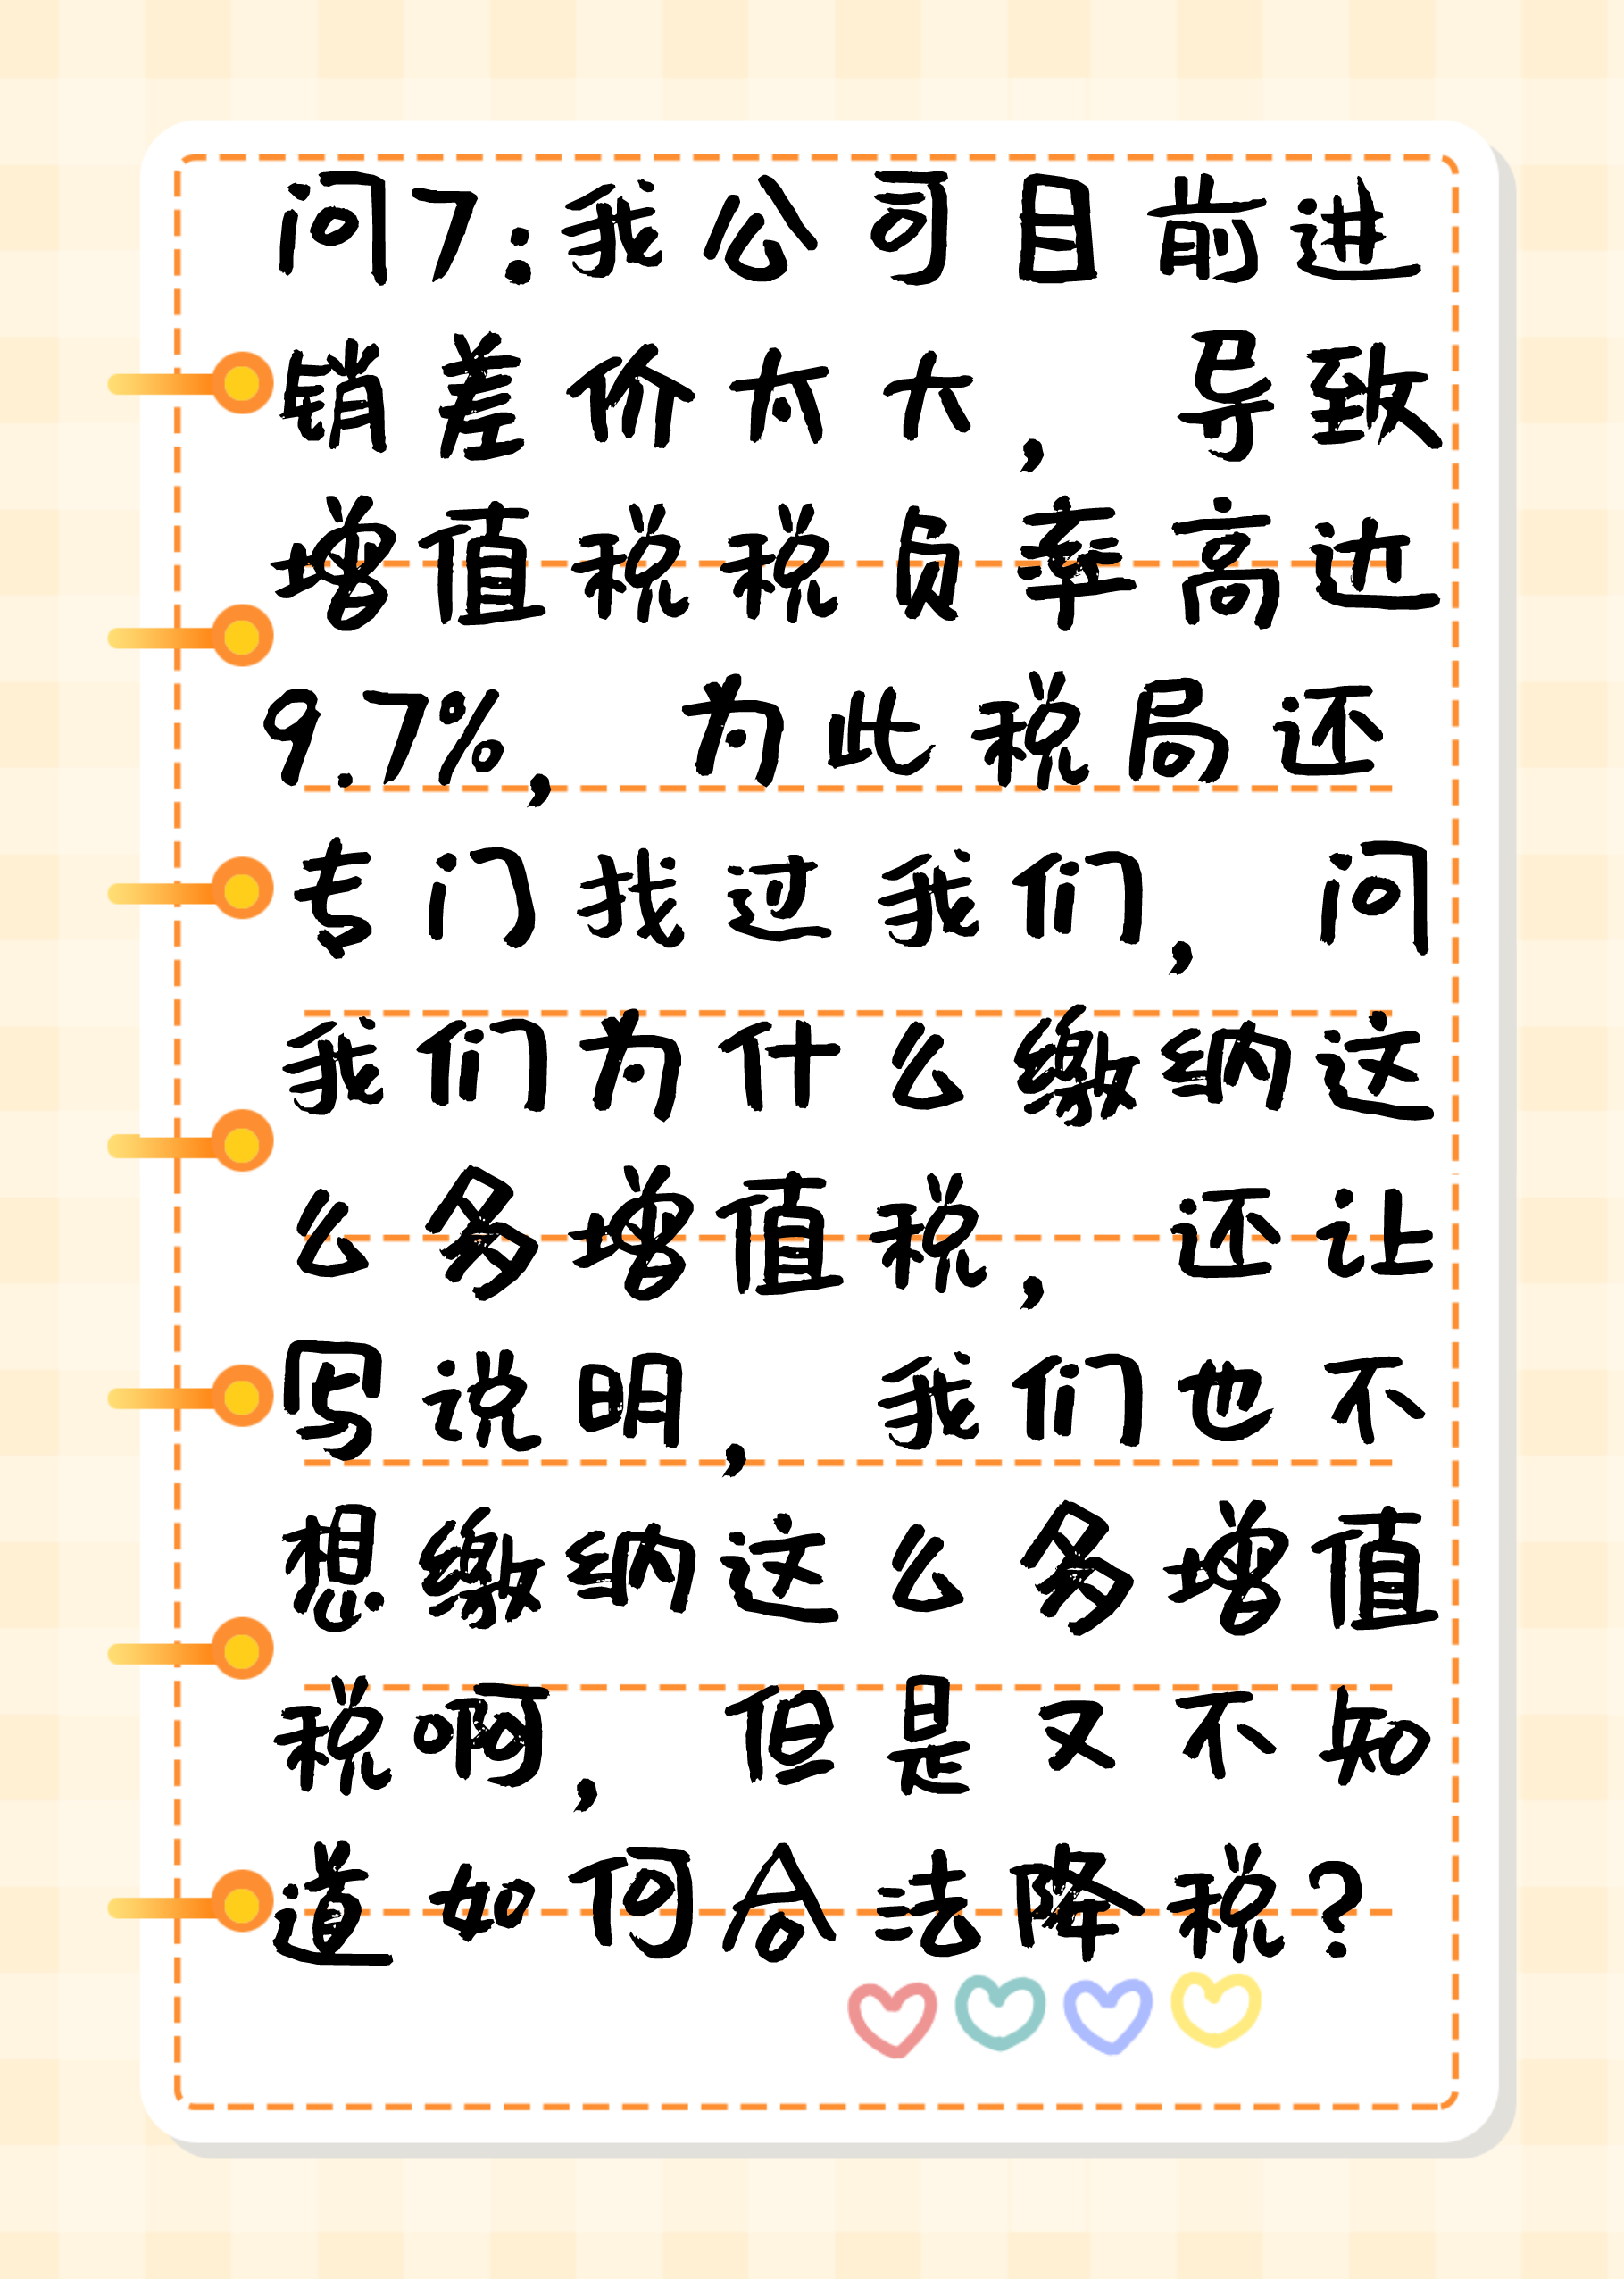 问7:我公司目前进
销差价太大,导致
增值税税负率高达
9.7%,为此税局还
专门找过我们,问
我们为什么缴纳这
么多增值税,还让
写说明,我们也不
想缴纳这么多增值
税啊,但是又不知
道如何合法降税?